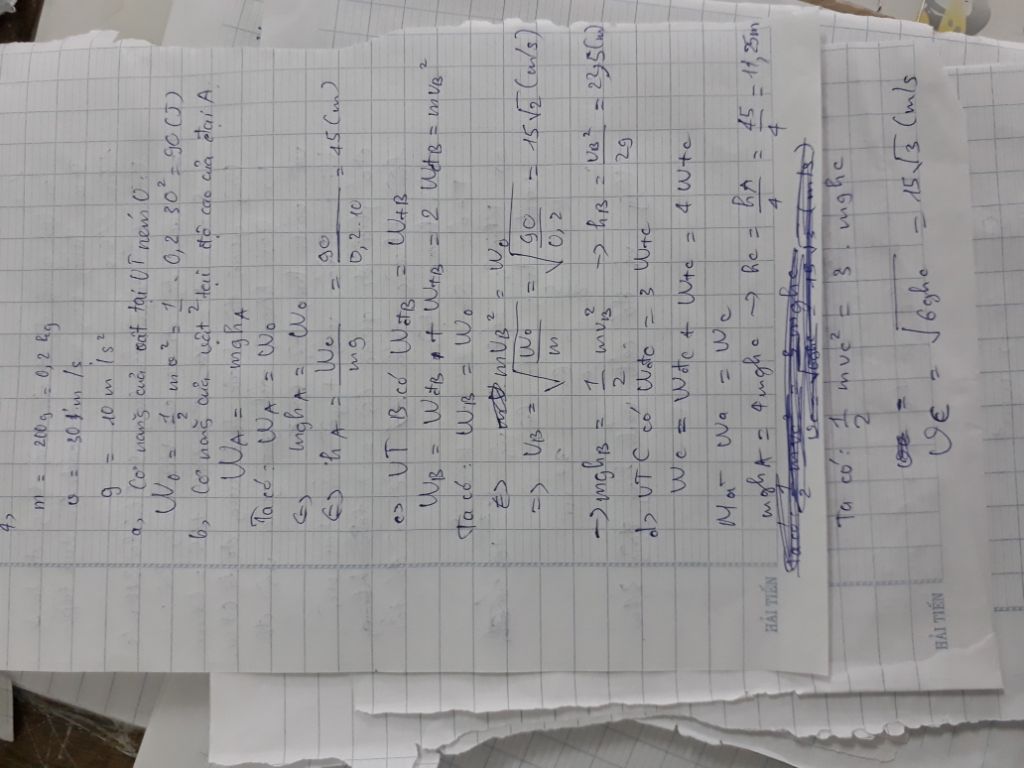 4,
m = 200g = 0,2 kg
v = 30 m/s
g = 10 m/s²
a, Cơ năng của vật tại VT ném O:
W₀ = 1/2 . m v² = 1/2 . 0,2 . 30² = 90 (J)
b, Cơ năng của vật tại độ cao cực đại A.
W_A = mgh_A
Ta có: W_A = W₀
<=> mgh_A = W₀
<=> h_A = W₀/mg = 90/0,2.10 = 45 (m)
c> VT B có W_đB = W_tB
W_B = W_đB + W_tB = 2 W_đB = mv_B²
Ta có: W_B = W₀
<=> mv_B² = W₀
=> v_B = √W₀/m = √90/0,2 = 15√2 (m/s)
-> mgh_B = 1/2 mv_B² -> h_B = v_B²/2g = 22,5 (m)
d> VT C có W_đC = 3 W_tC
W_C = W_đC + W_tC = 4 W_tC
Mà W_A = W_C
mgh_A = 4mgh_C -> h_C = h_A/4 = 45/4 = 11,25m
HẢI TIẾN
Ta có: 1/2 mv_C² = 3 . mgh_C
v_C = √6gh_C = 15√3 (m/s
HẢI TIẾN